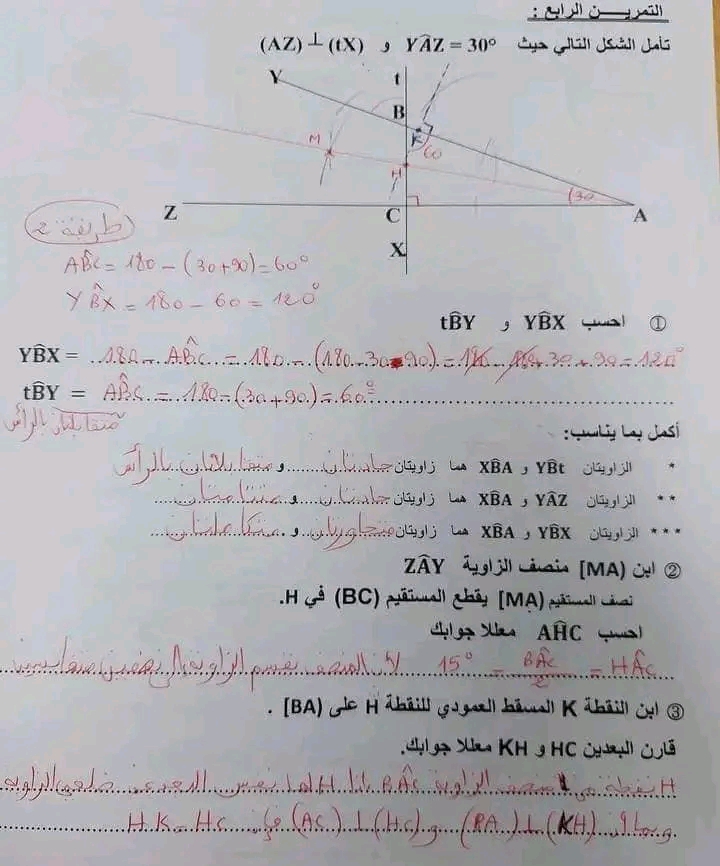 التمريــــن الرابع :
تأمل الشكل التالي حيث YÂZ = 30° و (AZ) ⊥ (tX)
Y
t
B
M
K
60
H
30
Z
C
A
X
طريقة 2
AB̂C = 180 - (30+90) = 60°
YB̂X = 180 - 60 = 120°
① احسب YB̂X و tB̂Y
YB̂X = 180 - AB̂C = 180 - (180-30-90) = 180 - 180 + 30 + 90 = 120°
tB̂Y = AB̂C = 180-(30+90) = 60°
متقابلتان بالرأس
أكمل بما يناسب:
* الزاويتان YB̂t و XB̂A هما زاويتان حادتان و متقابلتان بالرأس
** الزاويتان YÂZ و XB̂A هما زاويتان حادتان و متتامتان
*** الزاويتان YB̂X و XB̂A هما زاويتان متجاورتان و متكاملتان
② ابن [MA) منصف الزاوية ZÂY
نصف المستقيم [MA) يقطع المستقيم (BC) في H.
احسب AĤC معللا جوابك
HÂC = BÂC/2 = 15° لأن المنصف يقسم الزاوية إلى نصفين متقايسين
③ ابن النقطة K المسقط العمودي للنقطة H على [BA) .
قارن البعدين HC و KH معللا جوابك.
H نقطة من منصف الزاوية BÂC فإن H لها نفس البعد عن ضلعي الزاوية
وبما أن (KH) ⊥ (BA) و (HC) ⊥ (AC) فإن HK = HC